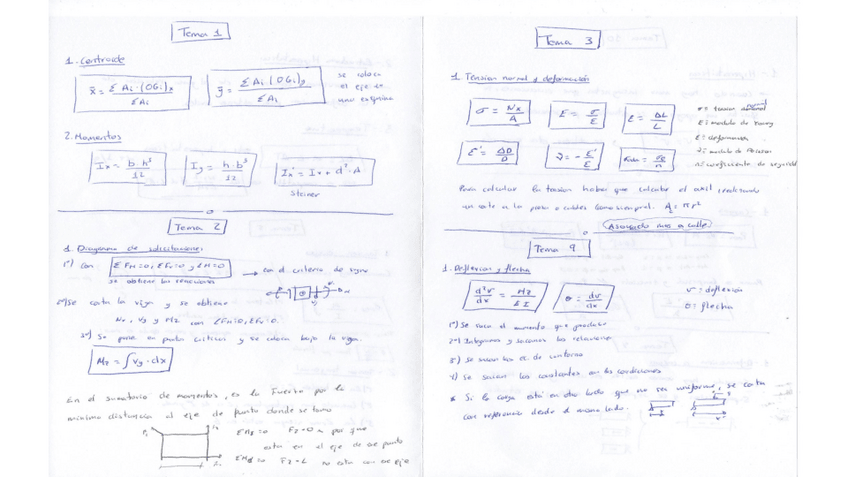 Tema 1
1. Centroide
x̄ = ΣAi·(OGi)x / ΣAi
ȳ = ΣAi(OGi)y / ΣAi
se coloca
el eje en
una esquina
2. Momentos
Ix = b·h³/12
Iy = h·b³/12
Ix' = Ix + d²·A
Steiner
Tema 2
1. Diagrama de solicitaciones
1º) Con ΣFH=0, ΣFV=0 y ΣM=0 → con el criterio de signo
se obtiene las reacciones
2º) Se corta la viga y se obtiene
Nx, Vy y Mz con ΣFH=0, ΣFV=0.
3º) Se pone en puntos criticos y se colocan bajo la viga.
Mz = ∫Vy·dx
En el sumatorio de momentos, es la fuerza por la
minima distancia al eje de punto donde se toma
por que
esta en el eje de ese punto
no esta con ese eje
Tema 3
1. Tension normal y deformación
σ = Nx/A
E = σ/ε
ε = ΔL/L
σ = tension normal
E = modulo de Young
ε = deformacion
ν = modulo de Poisson
n = coeficiente de seguridad
ε' = ΔD/D
ν = - ε'/ε
Para calcular la tension habra que calcular el axil realizando
un corte a la pieza o cables como siempre. A = πr²
Asociado mas a cable
Tema 9
1. Deflexion y flecha
d²v/dx = Mz/EI
θ = dv/dx
v = deflexión
θ = flecha
1º) Se saca el momento que produce
2º) Integramos y sacamos las relaciones
3º) Se sacan las cc de contorno
4) Se sacan las constantes con las condiciones
* Si la carga está en otro lado que no sea uniforme, se corta
con referencia desde el mismo lado.